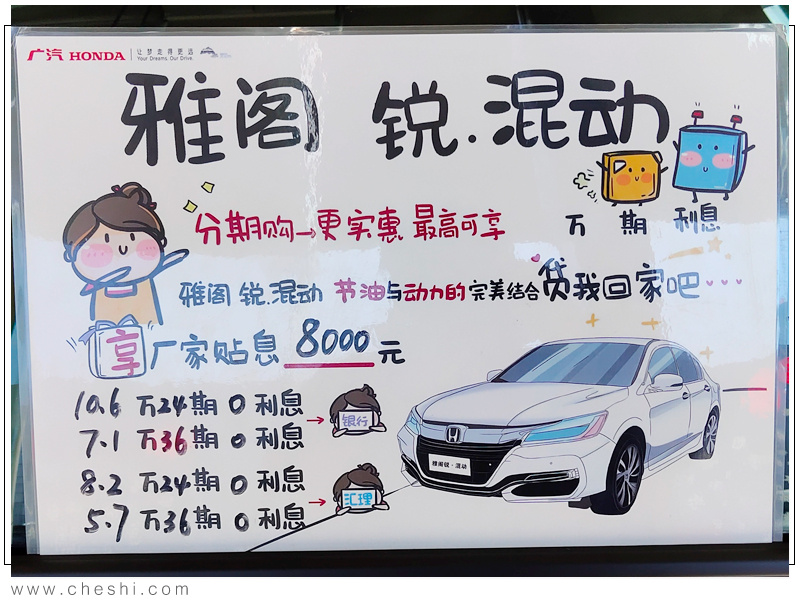 广汽 HONDA 让梦走得更远
Your Dreams. Our Drive.
雅阁 锐·混动
分期购→更实惠 最高可享 万 期 利息
雅阁 锐·混动 节油与动力的完美结合 贷我回家吧...
享厂家贴息 8000 元
10.6 万24期 0 利息
7.1 万36期 0 利息
→ 银行
8.2 万24期 0 利息
5.7 万36期 0 利息
→ 汇理
雅阁锐·混动
www.cheshi.com